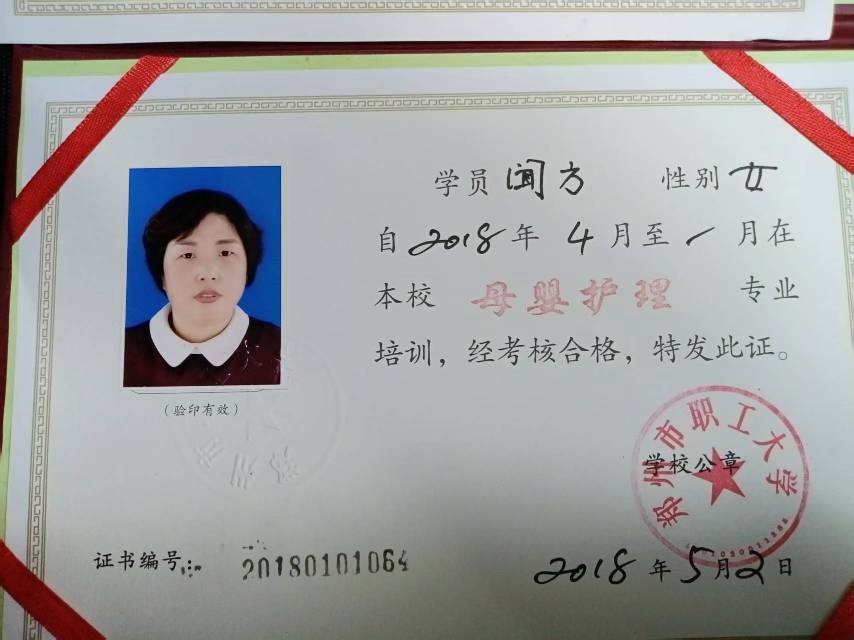 学员 闻方 性别 女
自 2018 年 4 月至 / 月在
本校 母婴护理 专业
培训，经考核合格，特发此证。
（验印有效）
郑州市职工大学
学校公章
证书编号： 20180101064
2018 年 5 月 2 日